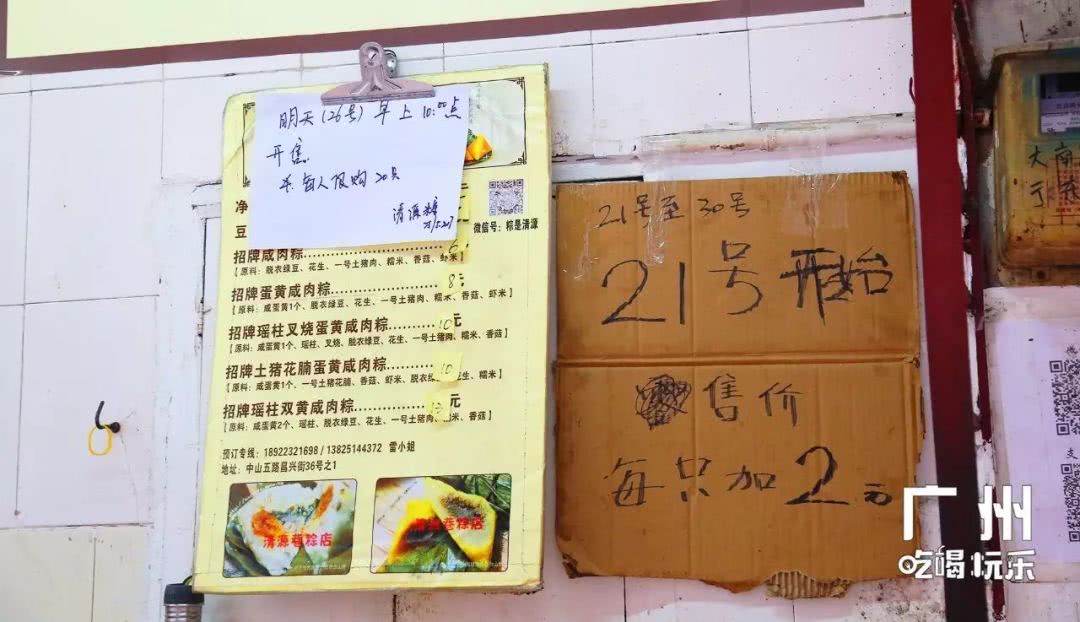 明天(26号)早上10:00点
开售
每人限购20只
清源粽
净
豆
微信号：粽是清源
招牌咸肉粽........................6
【原料：脱衣绿豆、花生、一号土猪肉、糯米、香菇、虾米】
招牌蛋黄咸肉粽..................8元
【原料：咸蛋黄1个、脱衣绿豆、花生、一号土猪肉、糯米、香菇、虾米】
招牌瑶柱叉烧蛋黄咸肉粽..........10元
【原料：咸蛋黄1个、瑶柱、叉烧、脱衣绿豆、花生、一号土猪肉、糯米、香菇】
招牌土猪花腩蛋黄咸肉粽..........10
【原料：咸蛋黄1个、一号土猪花腩、香菇、虾米、脱衣绿豆、花生、糯米】
招牌瑶柱双黄咸肉粽..............元
【原料：咸蛋黄2个、瑶柱、脱衣绿豆、花生、一号土猪肉、糯米、香菇】
预订专线：18922321698 / 13825144372 雷小姐
地址：中山五路昌兴街36号之1
清源巷粽店
清源巷粽店
21号至30号
21号开始
售价
每只加2元
大南
支
广州
吃喝玩乐